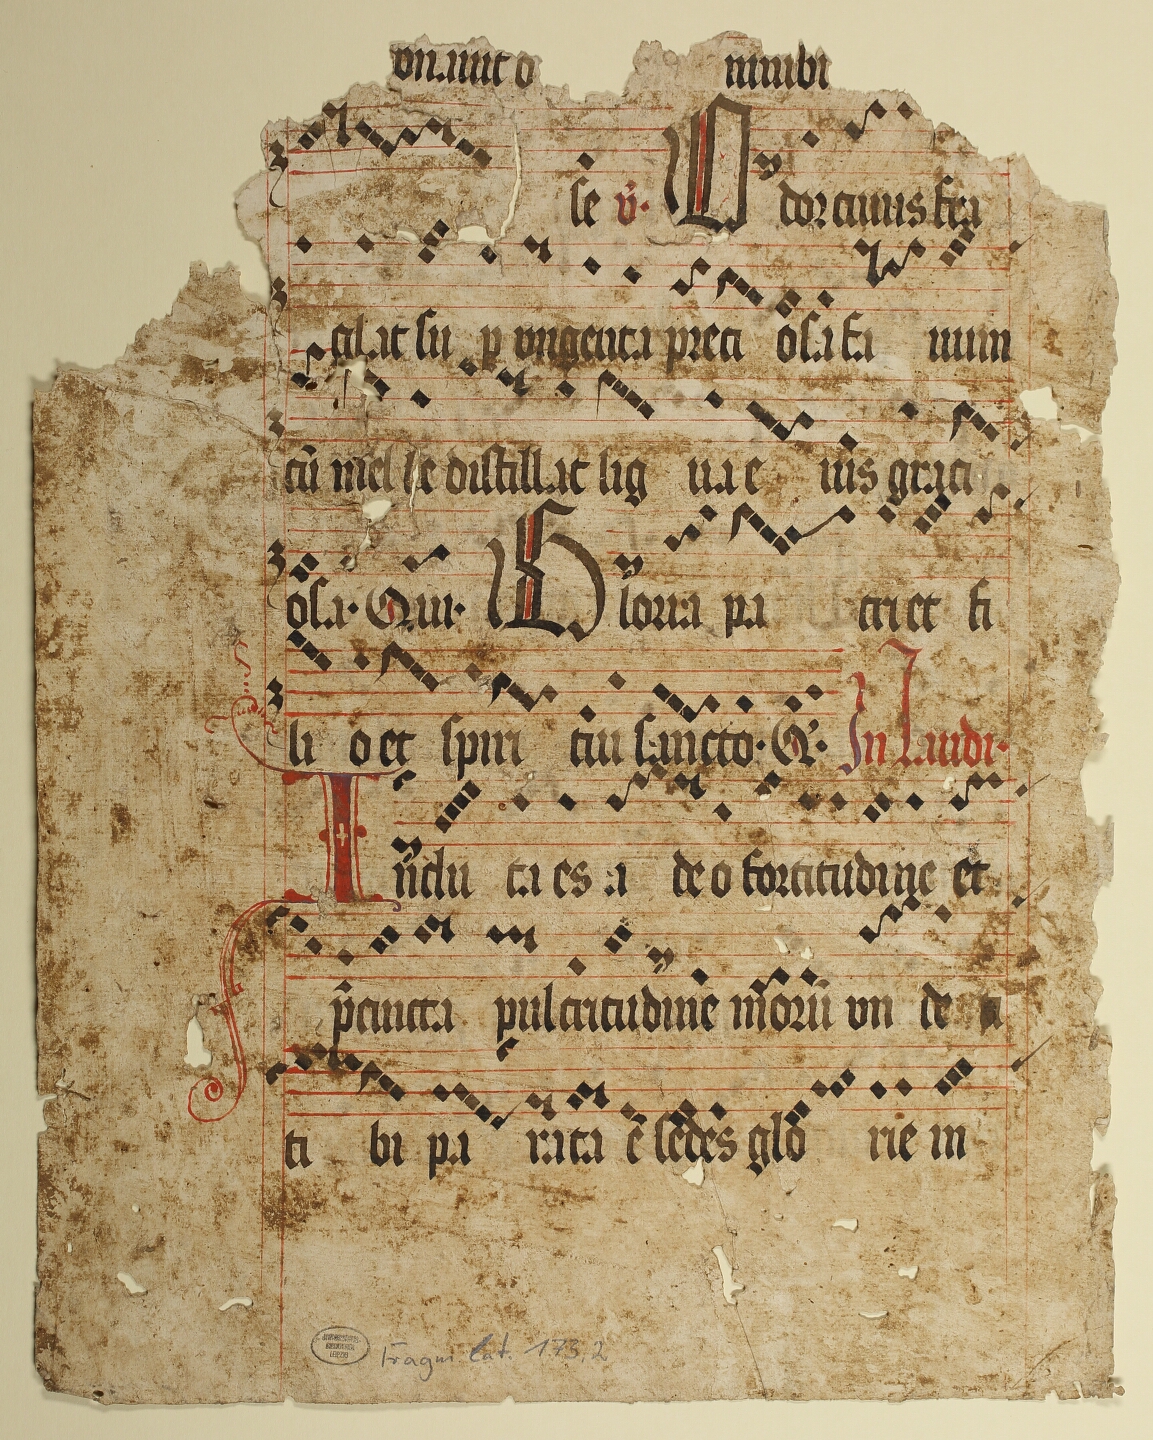 se v̄. Odor cuius fra
glat su p ungenta preci osa Fa uum
cū mel le distillat lig uae ius graci
osa. Qui. Gloria pa tri et fi
li o et spiri tui sancto. Q̄. In Laudi.
Indu ta es a deo fortitudine et
p̄cincta pulcritudine morū un de
ti bi pa rata ē sedes glo rie in
Fragm. Lat. 173,2